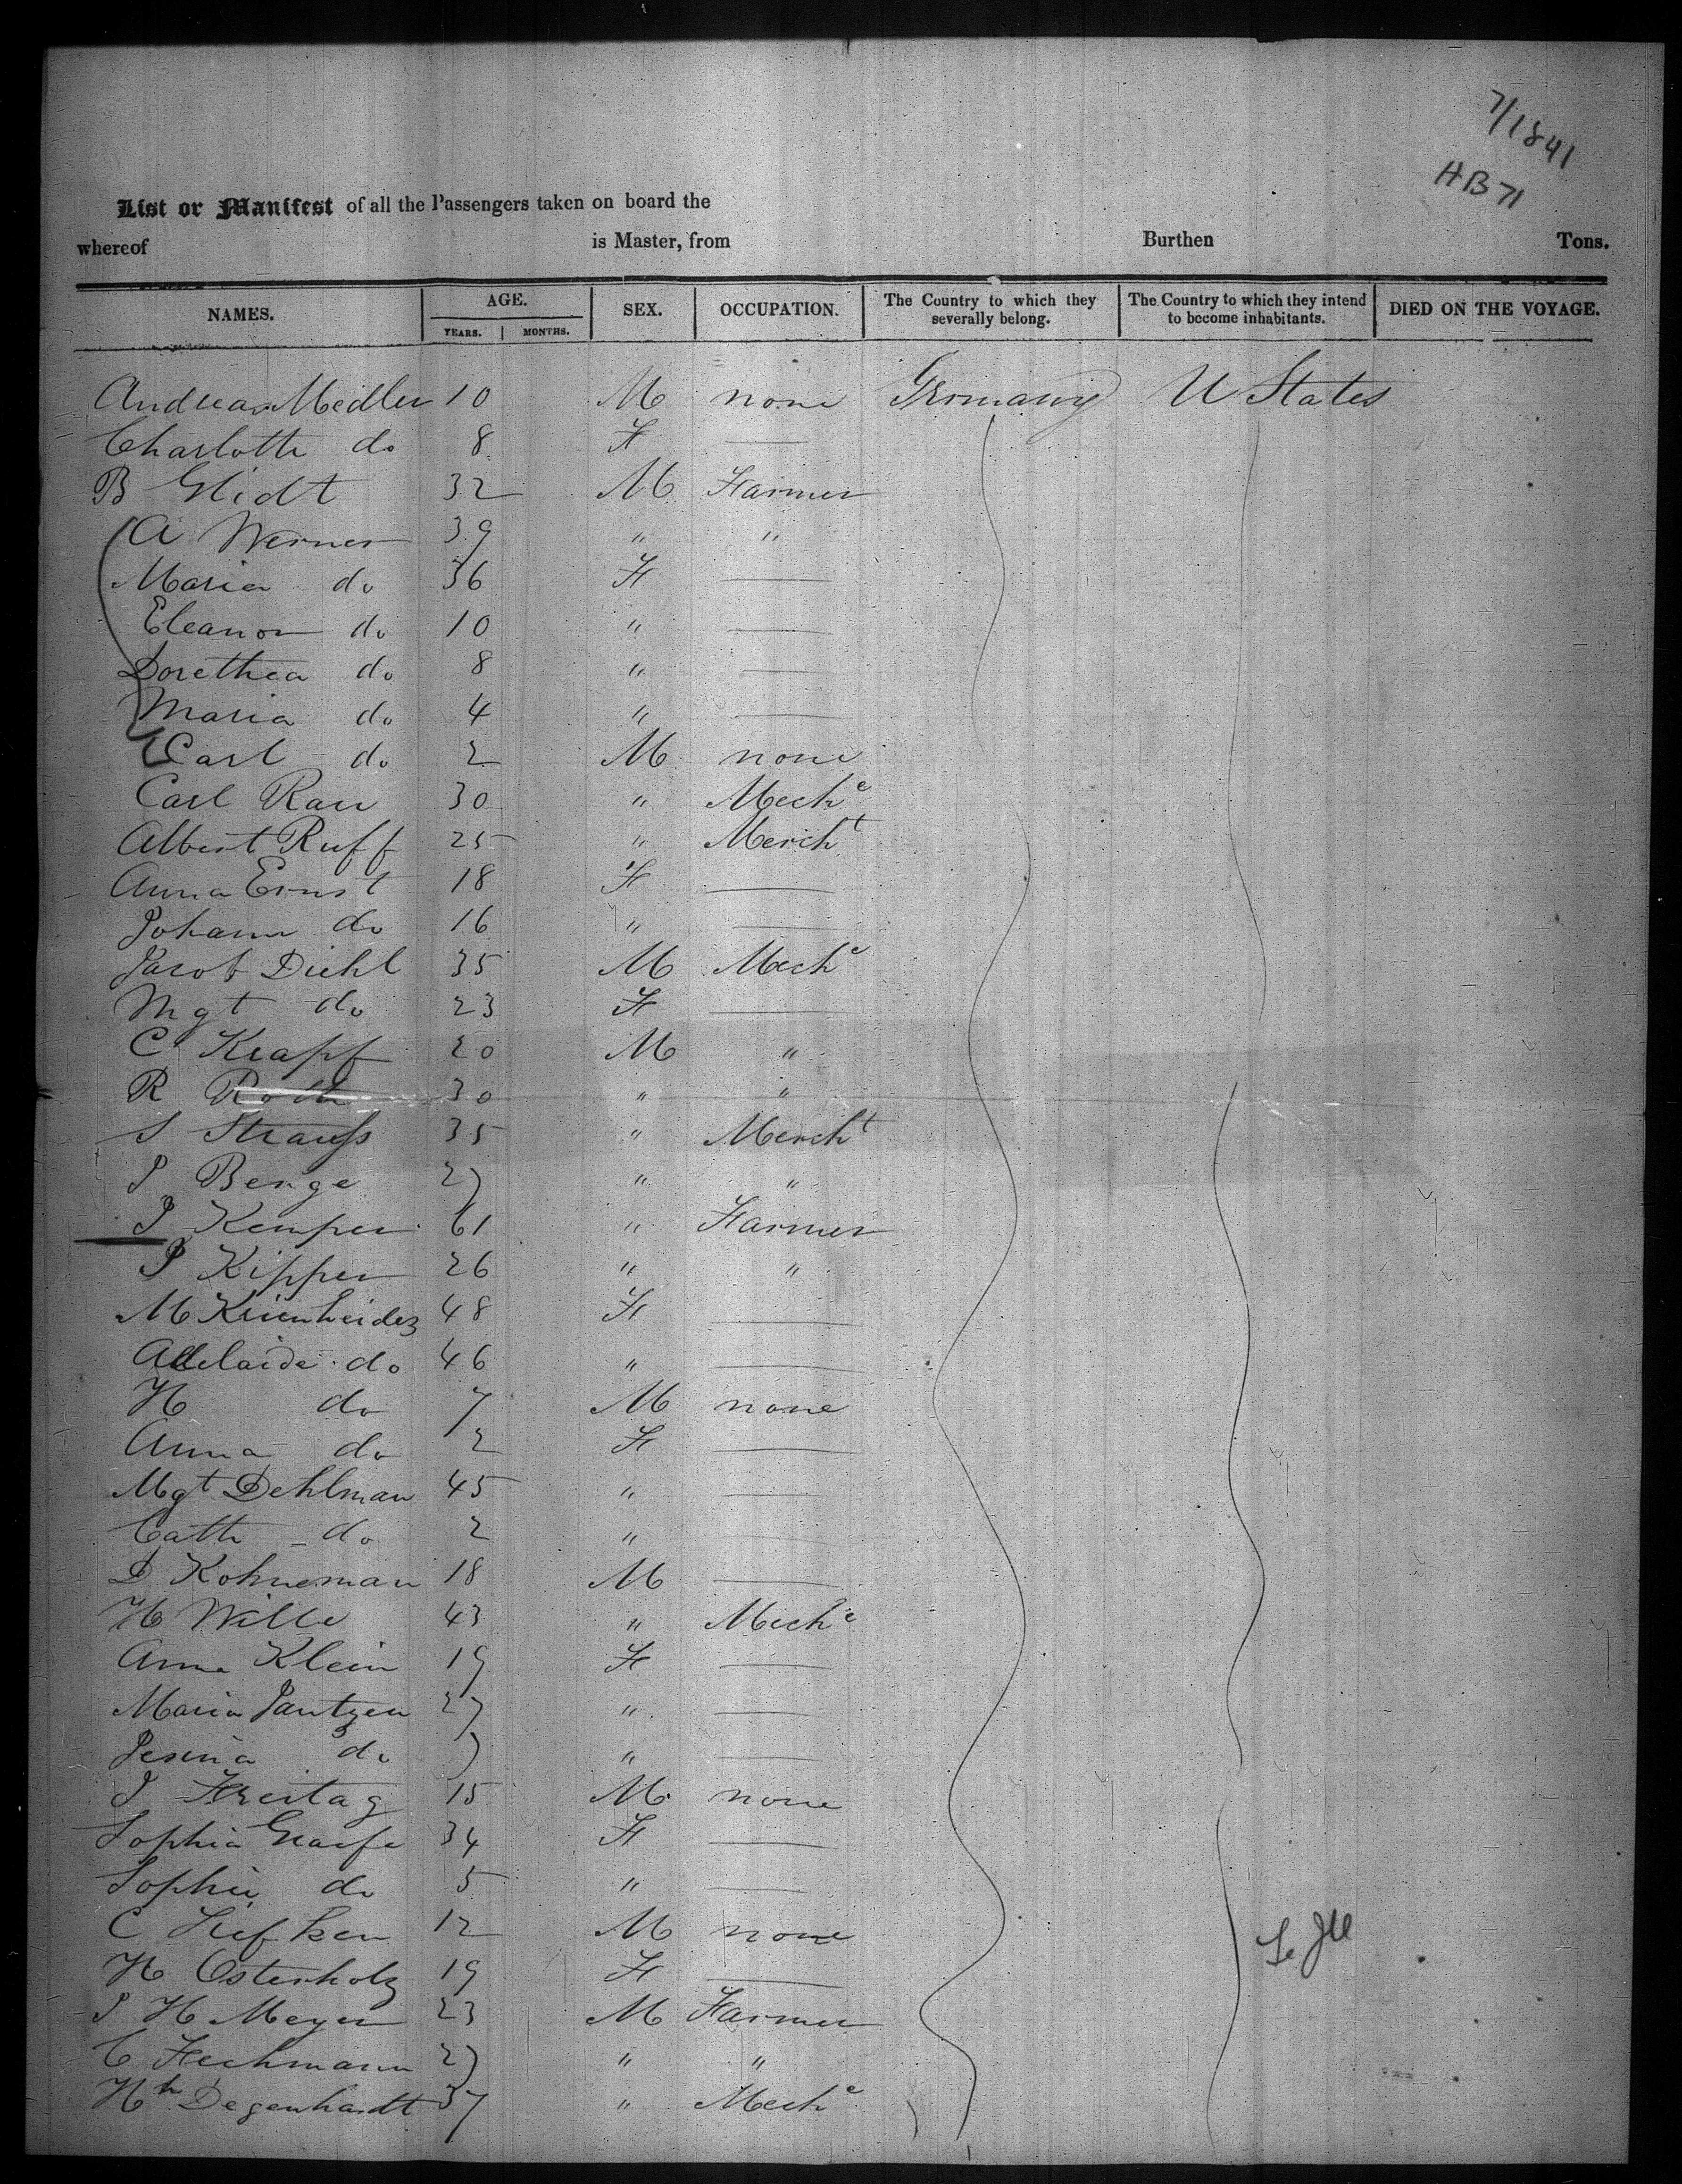 7/1841
HB 71
List or Manifest of all the Passengers taken on board the
whereof is Master, from Burthen Tons.
NAMES. AGE. YEARS. MONTHS. SEX. OCCUPATION. The Country to which they severally belong. The Country to which they intend to become inhabitants. DIED ON THE VOYAGE.
Andreas Medler 10 M none Germany U States
Charlotte do 8 F —
B Glidt 32 M Farmer
A Werner 39 " "
Maria do 36 F —
Eleanor do 10 " —
Dorethea do 8 " —
Maria do 4 " —
Carl do 2 M none
Carl Rau 30 " Mechc
Albert Ruff 25 " Mercht
Anna Ernst 18 F —
Johann do 16 " —
Jacob Diehl 35 M Mechc
Mgt do 23 F —
C Krapf 20 M "
R Roth 30 " "
S Strauss 35 " Mercht
J Benge 27 " "
J Kemper 61 " Farmer
J Kipper 26 " "
M 48 F —
Adelaide do 46 " —
H do 7 M none
Anna do 2 F —
Mgt Dehlman 45 " —
Cath do 2 " —
D Kohneman 18 M —
H Wille 43 " Mechc
Anna Klein 19 F —
Maria Jantzen 27 " —
Jesina do 7 " —
J Freitag 15 M none
Sophia Graefe 34 F —
Sophie do 5 " —
C 12 M none
H Osterholz 19 F —
J H Meyer 23 M Farmer
C Fechmann 27 " "
Hh Degenhardt 37 " Mechc